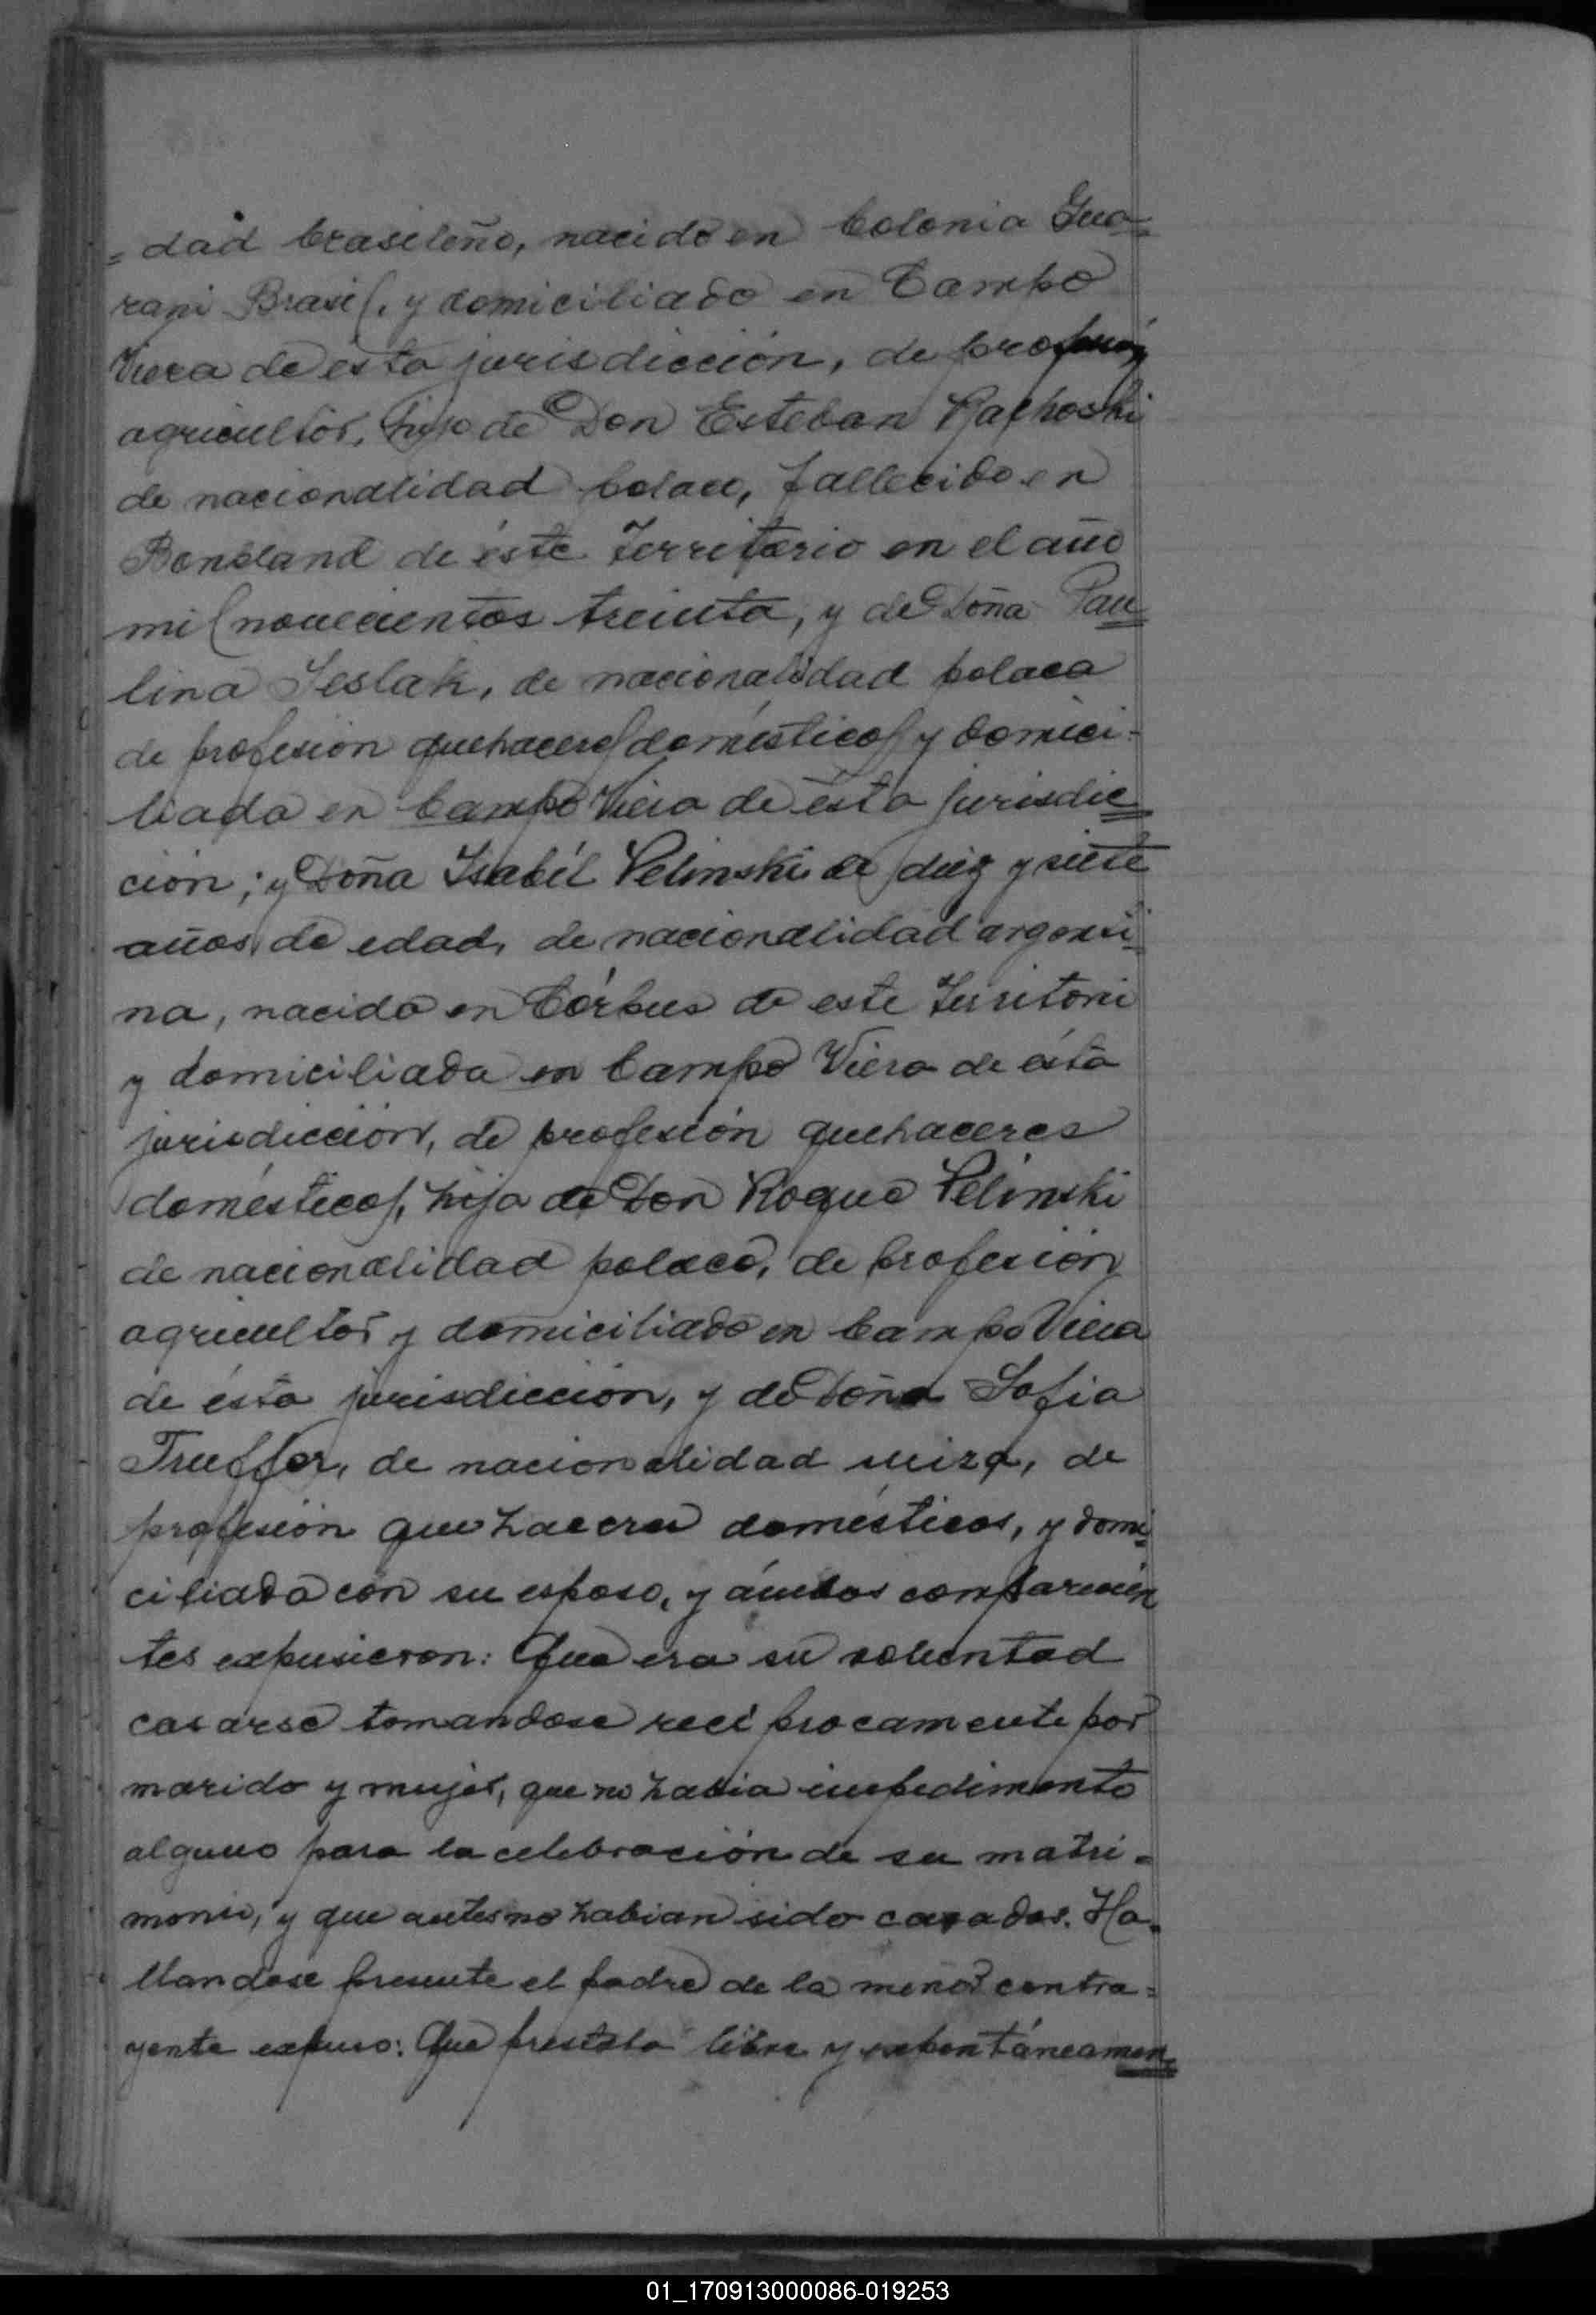 = dad brasileño, nacido en Colonia Gua=
rani Brasil, y domiciliado en Campo
Viera de ésta jurisdicción, de profesión
agricultor, hijo de Don Esteban Rachoski
de nacionalidad polaco, fallecido en
Bonpland de éste Territorio en el año
mil novecientos treinta, y de Doña Pau=
lina Seslak, de nacionalidad polaca
de profesión quehaceres domésticos y domici=
liada en Campo Viera de ésta jurisdic=
ción; y Doña Isabél Pelinski de diez y siete
años, de edad, de nacionalidad argenti=
na, nacida en Córpus de este Territorio
y domiciliada en Campo Viera de ésta
jurisdicción, de profesión quehaceres
domésticos, hija de Don Roque Pelinski
de nacionalidad polaco, de profesión
agricultor y domiciliado en Campo Viera
de ésta jurisdicción, y de Doña Sofia
Truffer, de nacionalidad suiza, de
profesión quehaceres domésticos, y domi=
ciliada con su esposo, y ámbos comparecien
tes expusieron: Que era su voluntad
casarse tomandose recíprocamente por
marido y mujer, que no habia impedimento
alguno para la celebración de su matri=
monio, y que antes no habian sido casados. Ha=
llandose presente el padre de la menor contra=
yente expuso: Que prestaba libre y espontáneamen=
01_170913000086-019253